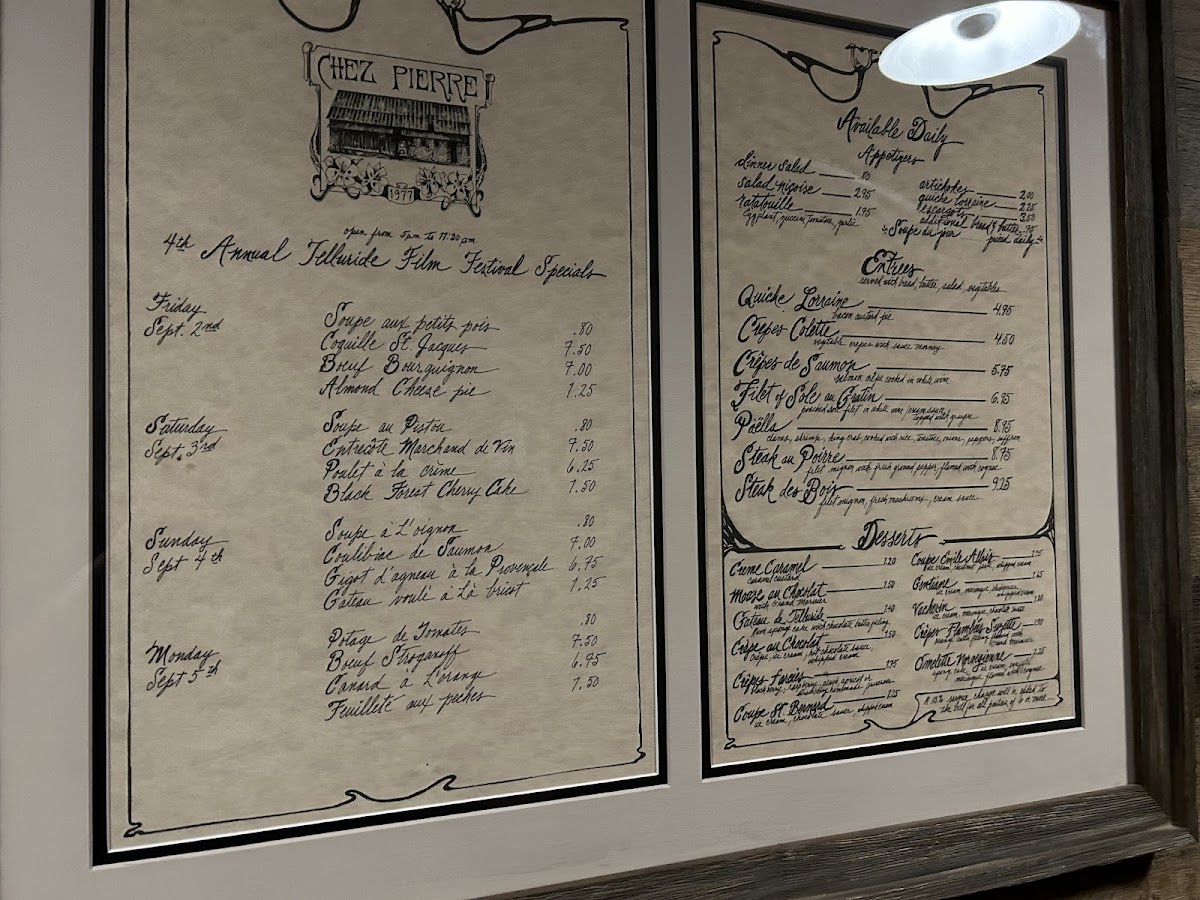 CHEZ PIERRE
1977
open from 5pm to 11:30 am
4th Annual Telluride Film Festival Specials
Friday
Sept. 2nd
Soupe aux petits pois .80
Coquille St Jacques 7.50
Bœuf Bourguignon 7.00
Almond Cheese pie 1.25
Saturday
Sept. 3rd
Soupe au Pistou .80
Entrecôte Marchand de Vin 7.50
Poulet à la crème 6.25
Black Forest Cherry Cake 1.50
Sunday
Sept 4th
Soupe à L'oignon .80
Coulibiac de Saumon 7.00
Gigot d'agneau à la Provençale 6.75
Gateau roulé à L'abricot 1.25
Monday
Sept 5th
Potage de Tomates .80
Bœuf Stroganoff 7.50
Canard à L'orange 6.95
Feuilleté aux pèches 1.50
Available Daily
Appetizers
dinner salad .80
salad niçoise 2.95
ratatouille 1.95
Eggplant, zuccini, tomatoe, garlic
artichokes 2.00
quiche lorraine 2.25
escargots 3.50
additional bread & butter .75
Soupe du jour priced daily
Entrees
served with bread, butter, salad, vegetables
Quiche Lorraine 4.95
bacon custard pie
Crêpes Colette 4.50
vegetable crepes with sauce mornay
Crêpes de Saumon 5.75
salmon crêpe cooked in white wine
Filet of Sole au Gratin 6.95
poached sole filet in white wine/cream sauce
topped with gruyere
Paëlla 8.95
clams, shrimps, king crab, cooked with rice, tomatoe, onions, peppers, saffron
Steak au Poivre 8.75
filet mignon with fresh ground pepper, flamed with cognac
Steak des Bois 9.25
filet mignon, fresh mushrooms, cream sauce
Desserts
Creme Caramel 1.20
caramel custard
Mousse au Chocolat 1.50
with Grand Marnier
Gateau de Telluride 1.40
Rum sponge cake with chocolate butter filling
Crêpe au Chocolat 1.50
crêpe, ice cream, hot chocolate sauce,
whipped cream
Crêpes Fareies 1.75
blackberry, raspberry, peach, apricot or
strawberry homemade preserve
Coupe St. Bernard 1.25
ice cream, chocolate sauce, whipped cream
Coupe Emile Allais 1.75
ice cream, chestnut paste, whipped cream
Gentiane
ice cream, meringue,
whipped cream
Vacherin
ice cream, meringue, chocolate sauce
Crêpes Flambées Suzette
orange butter filling flamed with
Grand Marnier
Omelette Norvegienne 2.25
sponge cake, ice cream,
meringue flamed with cognac
A 15% service charge will be added to
the bill for all parties of 6 or more